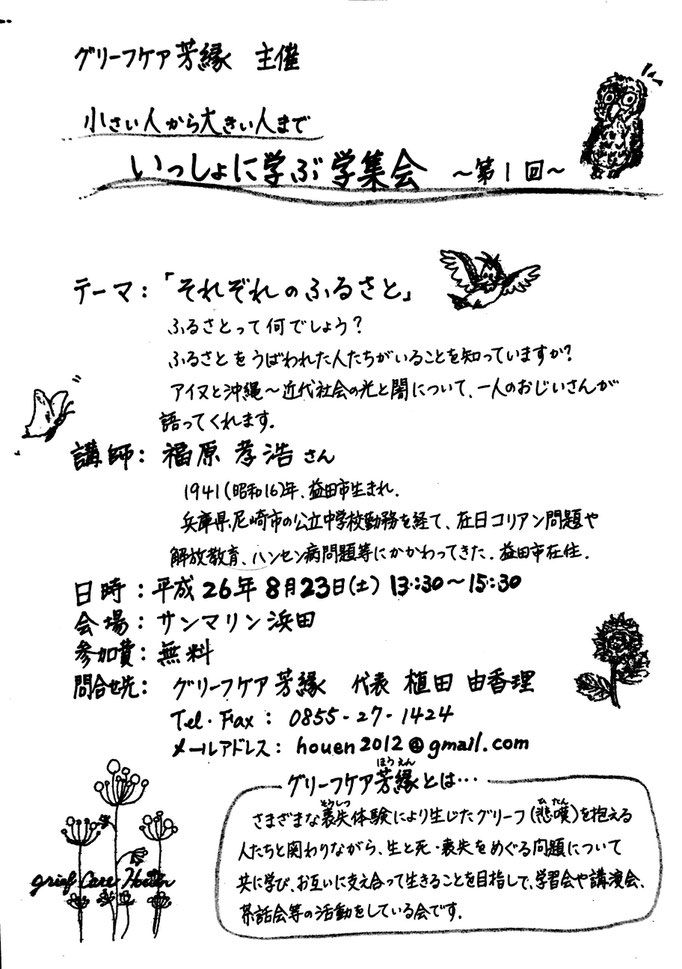 グリーフケア芳縁 主催
小さい人から大きい人まで
いっしょに学ぶ学集会 ~第1回~
テーマ:「それぞれのふるさと」
ふるさとって何でしょう?
ふるさとをうばわれた人たちがいることを知っていますか?
アイヌと沖縄~近代社会の光と闇について、一人のおじいさんが
語ってくれます。
講師: 福原孝浩さん
1941(昭和16)年、益田市生まれ.
兵庫県尼崎市の公立中学校勤務を経て、在日コリアン問題や
解放教育、ハンセン病問題等にかかわってきた. 益田市在住.
日時:平成26年8月23日(土) 13:30~15:30
会場: サンマリン浜田
参加費: 無料
問合せ先: グリーフケア芳縁 代表 植田 由香理
Tel・Fax: 0855-27-1424
メールアドレス: houen2012@gmail.com
ほうえん
グリーフケア芳縁とは…
そうしつ ひたん
さまざまな喪失体験により生じたグリーフ(悲嘆)を抱える
人たちと関わりながら、生と死・喪失をめぐる問題について
共に学び、お互いに支え合って生きることを目指して、学習会や講演会、
茶話会等の活動をしている会です.
grief Care Houen